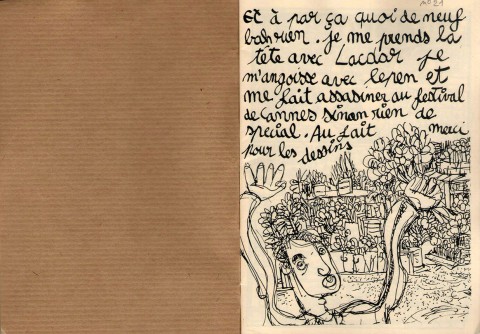 n° 21
Et à par ça quoi de neuf
bah rien. je me prends la
tete avec Lacdar je
m'angoisse avec lepen et
me fait assasiner au festival
de cannes sinan rien de
special. Au fait merci
pour les dessins